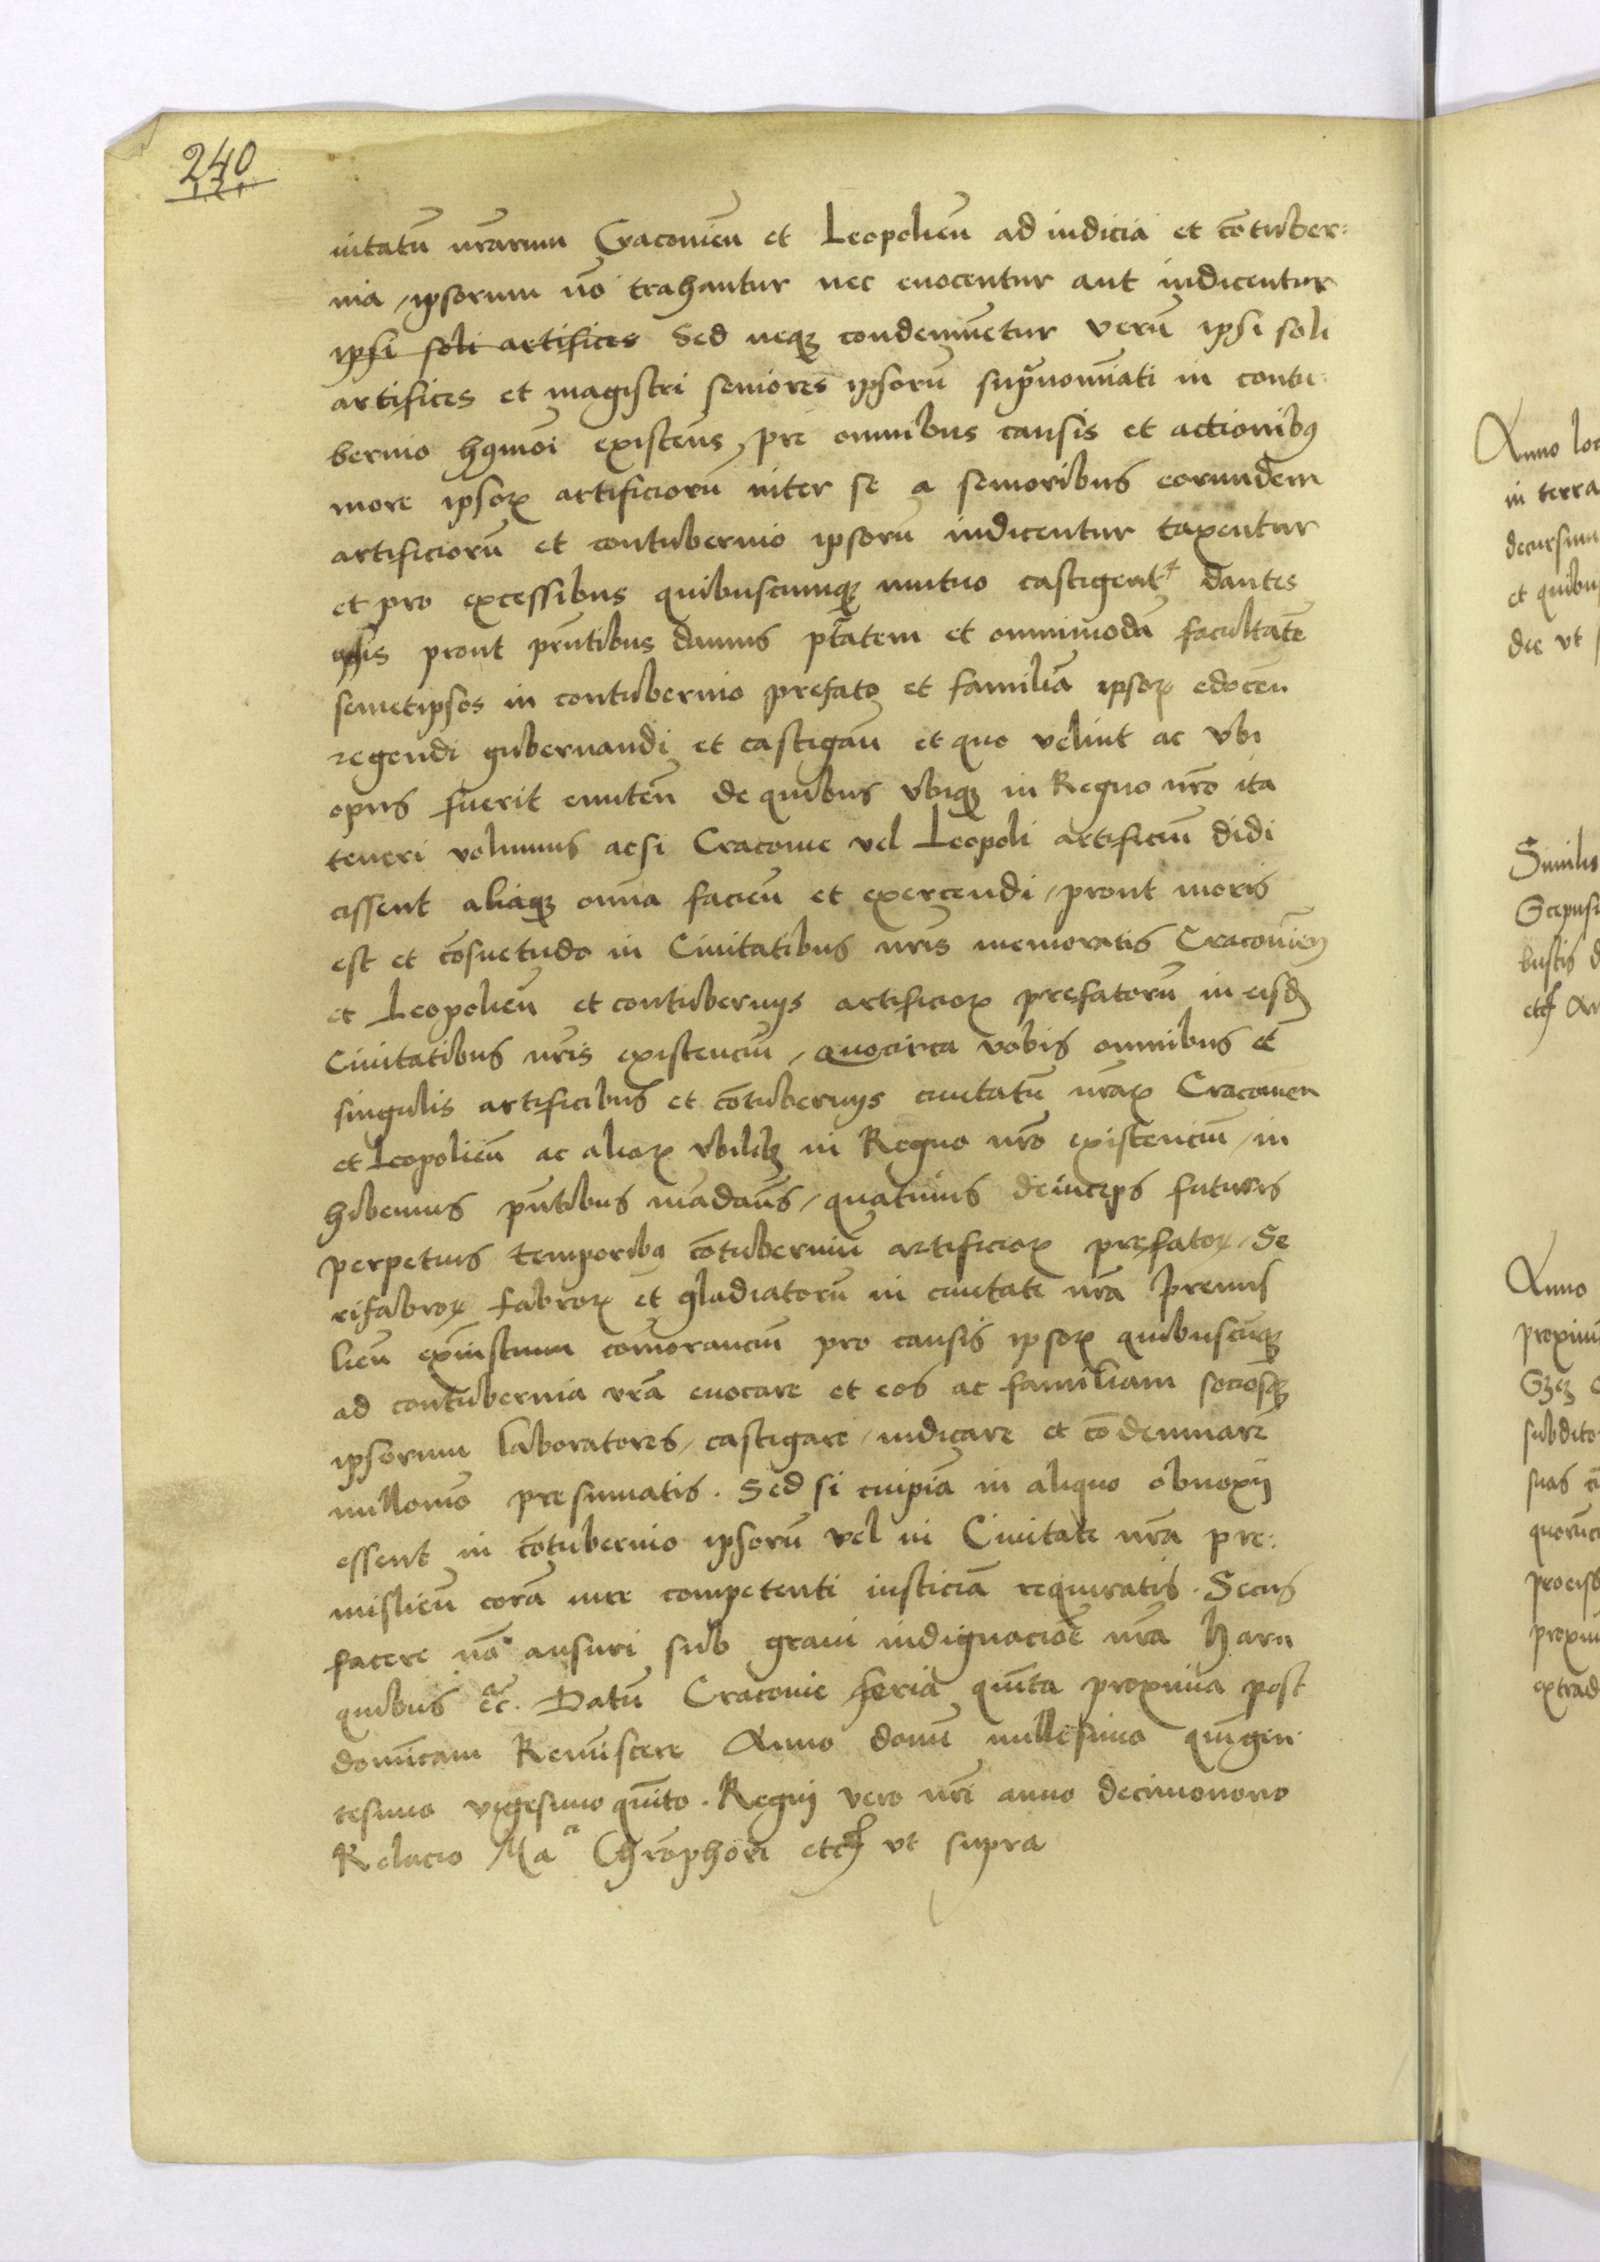 240
uitatū nrarum Cracouien̄ et Leopolien̄ ad iudicia et cōtuber:
nia, ipsorum nō trahantur nec euocentur aut iudicentur
ipsi soli artifices Sed neqꝫ condemnetur verū ipsi soli
artifices et magistri seniores ipsorū supranoīati in contu:
bernio hꝰmōi existeñs, pre omnibus causis et actionibꝰ
more ipsoꝝ artificiorū inter se a senioribus eorundem
artificiorū et contubernio ipsorū iudicentur taxentur
et pro excessibus quibuscumqꝫ mutuo castigentr dantes
ipsis prout pn̄tibus damus ptātem et omnimodā facultatē
semetipsos in contubernio prefato et familiā ipsoꝝ edocen̄
regendi gubernandi et castigan̄ et quo velint ac vbi
opus fuerit emitten̄ de quibus vbiqꝫ in Regno nr̄o ita
teneri volumus acsi Cracouie vel Leopoli artificiū didi
cissent aliaqꝫ om̄ia facien̄ et exercendi, prout moris
est et cōsuetudo in Ciuitatibus nr̄is memoratis Cracouien̄
et Leopolien̄ et contubernijs artificioꝝ prefatorū in eisd̄
Ciuitatibus nr̄is existenciū, Quocirca vobis omnibus et
singulis artificibus et cōtubernijs ciuitatū nr̄aꝝ Cracouien
et Leopolien̄ ac alioꝝ vbilibꝫ in Regno nr̄o existenciū, in
hibemus pn̄tibus mādan̄s, quatinus deinceps futuris
perpetuis temporibꝰ cōtuberniū artificioꝝ prefatoꝝ, Se
rifabroꝝ fabroꝝ et gladiatorū in ciuitate nr̄a Premis
lien̄ existunn comoranciū pro causis ipsoꝝ quibuscūqꝫ
ad contubernia vr̄a euocare et eos ac familiam sociosqꝫ
ipsorum laboratores, castigare, iudicare et cōdemnare
nullomō presumatis. Sed si cuipiā in aliquo obnoxij
essent in cōtubernio ipsorū vel in Ciuitate nr̄a pre:
mislien̄ corā iure competenti iusticiā requiratis. Secus
facere nō ausuri sub graui indignacioē nr̄a Harū
quibus etc̄. Datū Cracouie feria quīta proxima post
dominicam Reminiscere Anno domī millesimo quīgen
tesimo vigesimo quīto. Regni vero nr̄i anno decimonono
Relacio Ma Chrōphori etc ut supra
Anno
in terra
decursum
et quibu
die vt
Similis
Scepusi
bustis
etc
Anno
proximū
subdito
suas
quorūc
proxim
extrad